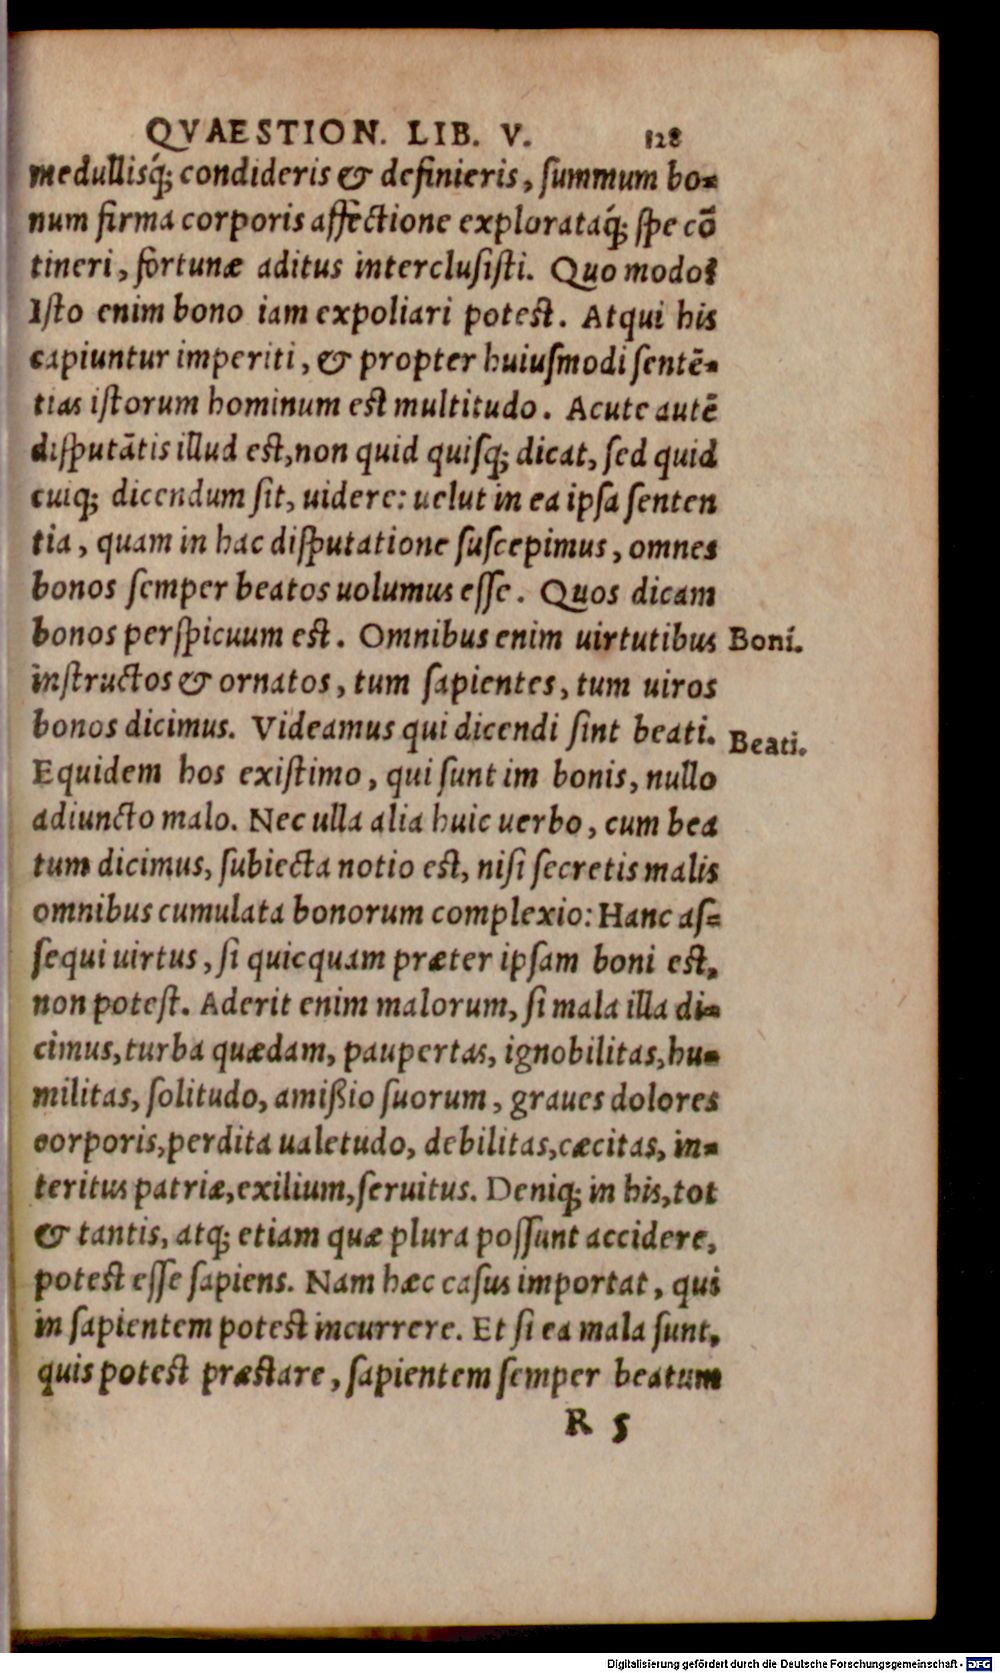 QVAESTION. LIB. V. 128
medullisq́; condideris & definieris, ſummum bo-
num firma corporis affectione explorataq́; ſpe cō
tineri, fortunæ aditus interclusiſti. Quo modo?
Iſto enim bono iam expoliari potest. Atqui his
capiuntur imperiti, & propter huiuſmodi ſentē-
tias iſtorum hominum est multitudo. Acute autē
diſputātis illud est, non quid quiſq; dicat, ſed quid
cuiq; dicendum ſit, uidere: uelut in ea ipſa ſenten
tia, quam in hac diſputatione ſuſcepimus, omnes
bonos ſemper beatos uolumus eſſe. Quos dicam
bonos perſpicuum est. Omnibus enim uirtutibus Boni.
inſtructos & ornatos, tum ſapientes, tum uiros
bonos dicimus. Videamus qui dicendi ſint beati. Beati.
Equidem hos exiſtimo, qui ſunt im bonis, nullo
adiuncto malo. Nec ulla alia huic uerbo, cum bea
tum dicimus, ſubiecta notio est, niſi ſecretis malis
omnibus cumulata bonorum complexio: Hanc aſ-
ſequi uirtus, ſi quicquam præter ipſam boni est,
non poteſt. Aderit enim malorum, ſi mala illa di-
cimus, turba quædam, paupertas, ignobilitas, hu-
militas, ſolitudo, amiſſio ſuorum, graues dolores
corporis, perdita ualetudo, debilitas, cæcitas, in-
teritus patriæ, exilium, ſeruitus. Deniq; in his, tot
& tantis, atq; etiam quæ plura poſſunt accidere,
potest eſſe ſapiens. Nam hæc caſus importat, qui
in ſapientem potest incurrere. Et ſi ea mala ſunt,
quis potest præstare, ſapientem ſemper beatum
R 5
Digitalisierung gefördert durch die Deutsche Forschungsgemeinschaft - DFG